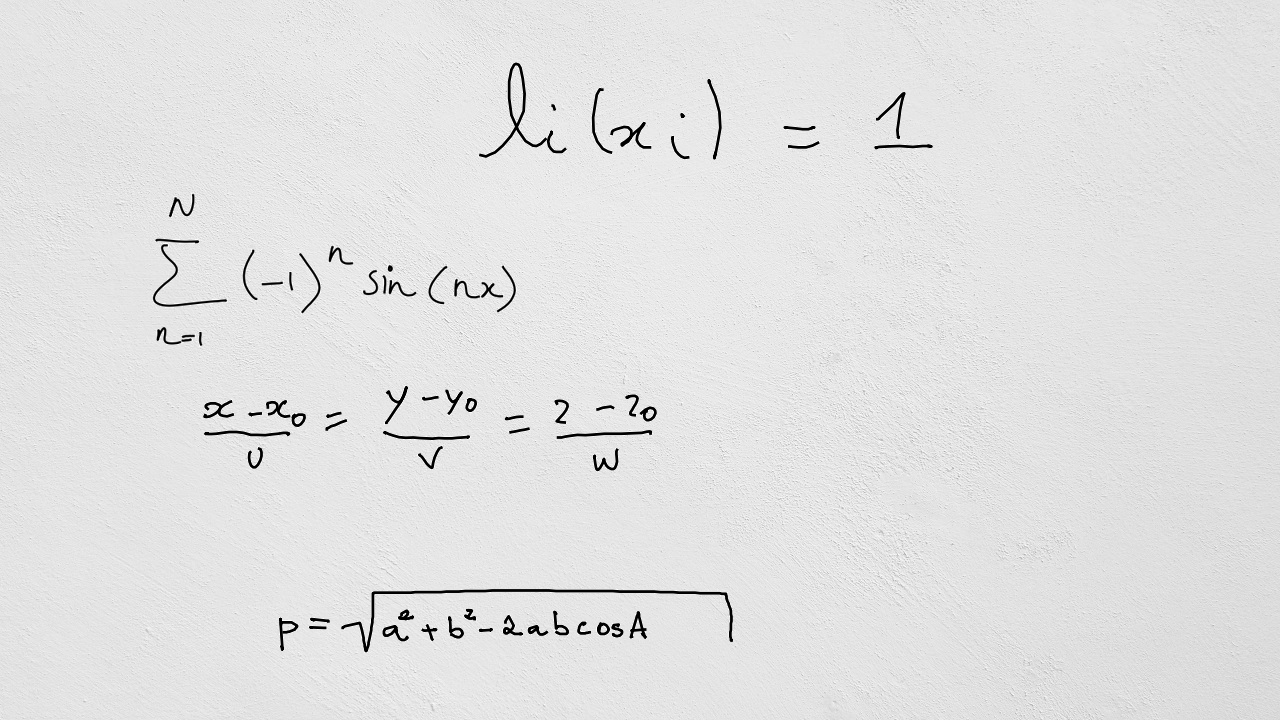 li(xi) = 1
∑_{n=1}^{N} (-1)^n sin(nx)
(x - x₀)/U = (y - y₀)/V = (2 - 2₀)/W
p = √(a² + b² - 2abcosA)